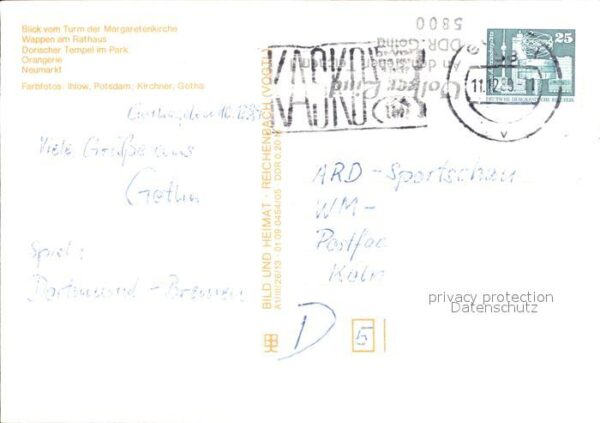 Blick vom Turm der Margaretenkirche
Wappen am Rathaus
Dorischer Tempel im Park
Orangerie
Neumarkt
Farbfotos: Ihlow, Potsdam; Kirchner, Gotha
Gotha, den 10.12.89
Viele Grüße aus
Gotha
Spiel:
Dortmund - Bremen
BILD UND HEIMAT · REICHENBACH (VOGTL)
A1/III/26/13 · 01 09 0454/05 DDR 0,20 M
KASKO
5800
DDR Gotha
25
DEUTSCHE DEMOKRATISCHE REPUBLIK
ARD - Sportschau
WM -
Postfac
Köln
D
5
privacy protection
Datenschutz